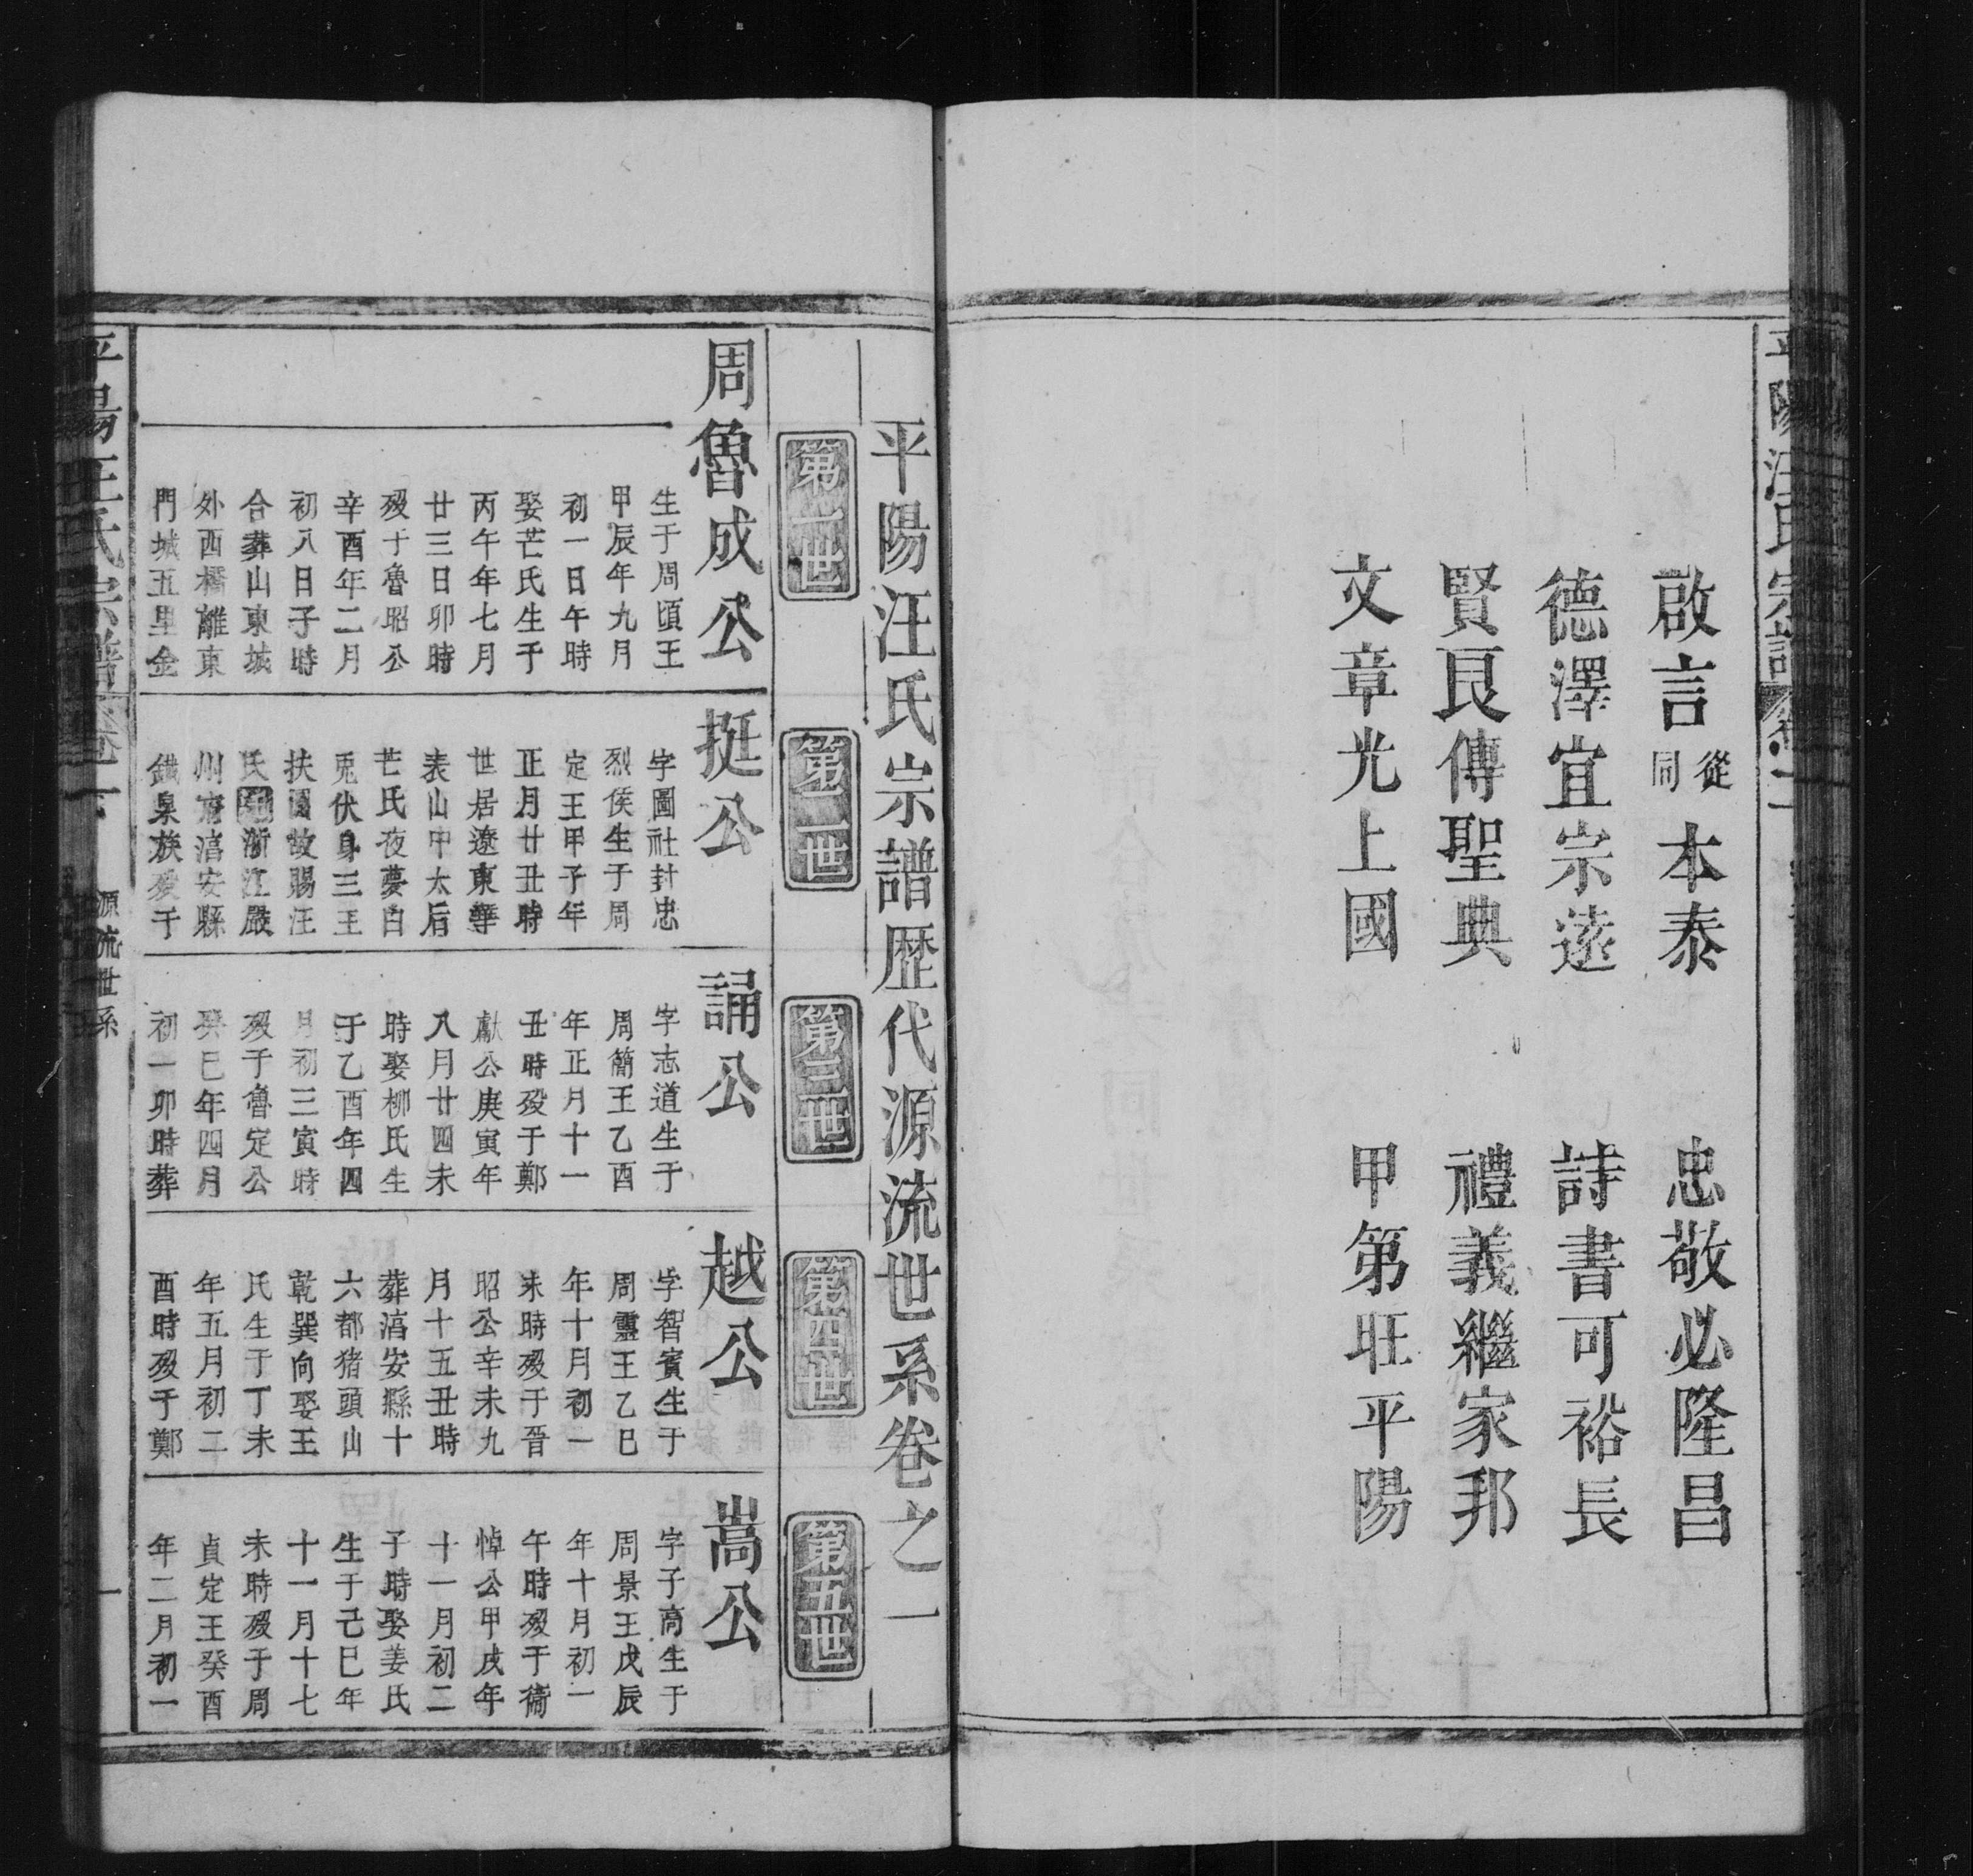 平陽汪氏宗譜
啟言從同本泰
忠敬必隆昌
德澤宜宗遠
詩書可裕長
賢良傳聖典
禮義繼家邦
文章光上國
甲第旺平陽
平陽汪氏宗譜歷代源流世系卷之一
第一世
第二世
第三世
第四世
第五世
周魯成公
生于周頃王
甲辰年九月
初一日午時
娶芒氏生于
丙午年七月
廿三日卯時
歿于魯昭公
辛酉年二月
初八日子時
合葬山東城
外西橋離東
門城五里金
挺公
字圖社封忠
烈侯生于周
定王甲子年
正月廿丑時
世居遼東華
表山中太后
芒氏夜夢白
兎伏身三王
扶國故賜汪
氏 浙江嚴
州府湻安縣
鐵泉族歿于
誦公
字志道生于
周簡王乙酉
年正月十一
丑時歿于鄭
獻公庚寅年
八月廿四未
時娶柳氏生
于乙酉年四
月初三寅時
歿于魯定公
癸巳年四月
初一卯時葬
越公
字智賓生于
周靈王乙巳
年十月初一
未時歿于晉
昭公辛未九
月十五丑時
葬湻安縣十
六都猪頭山
乾巽向娶王
氏生于丁未
年五月初二
酉時歿于鄭
嵩公
字子高生于
周景王戊辰
年十月初一
午時歿于衞
悼公甲戌年
十一月初二
子時娶姜氏
生于己巳年
十一月十七
未時歿于周
貞定王癸酉
年二月初一
平陽汪氏宗譜
卷一
源流世系
一